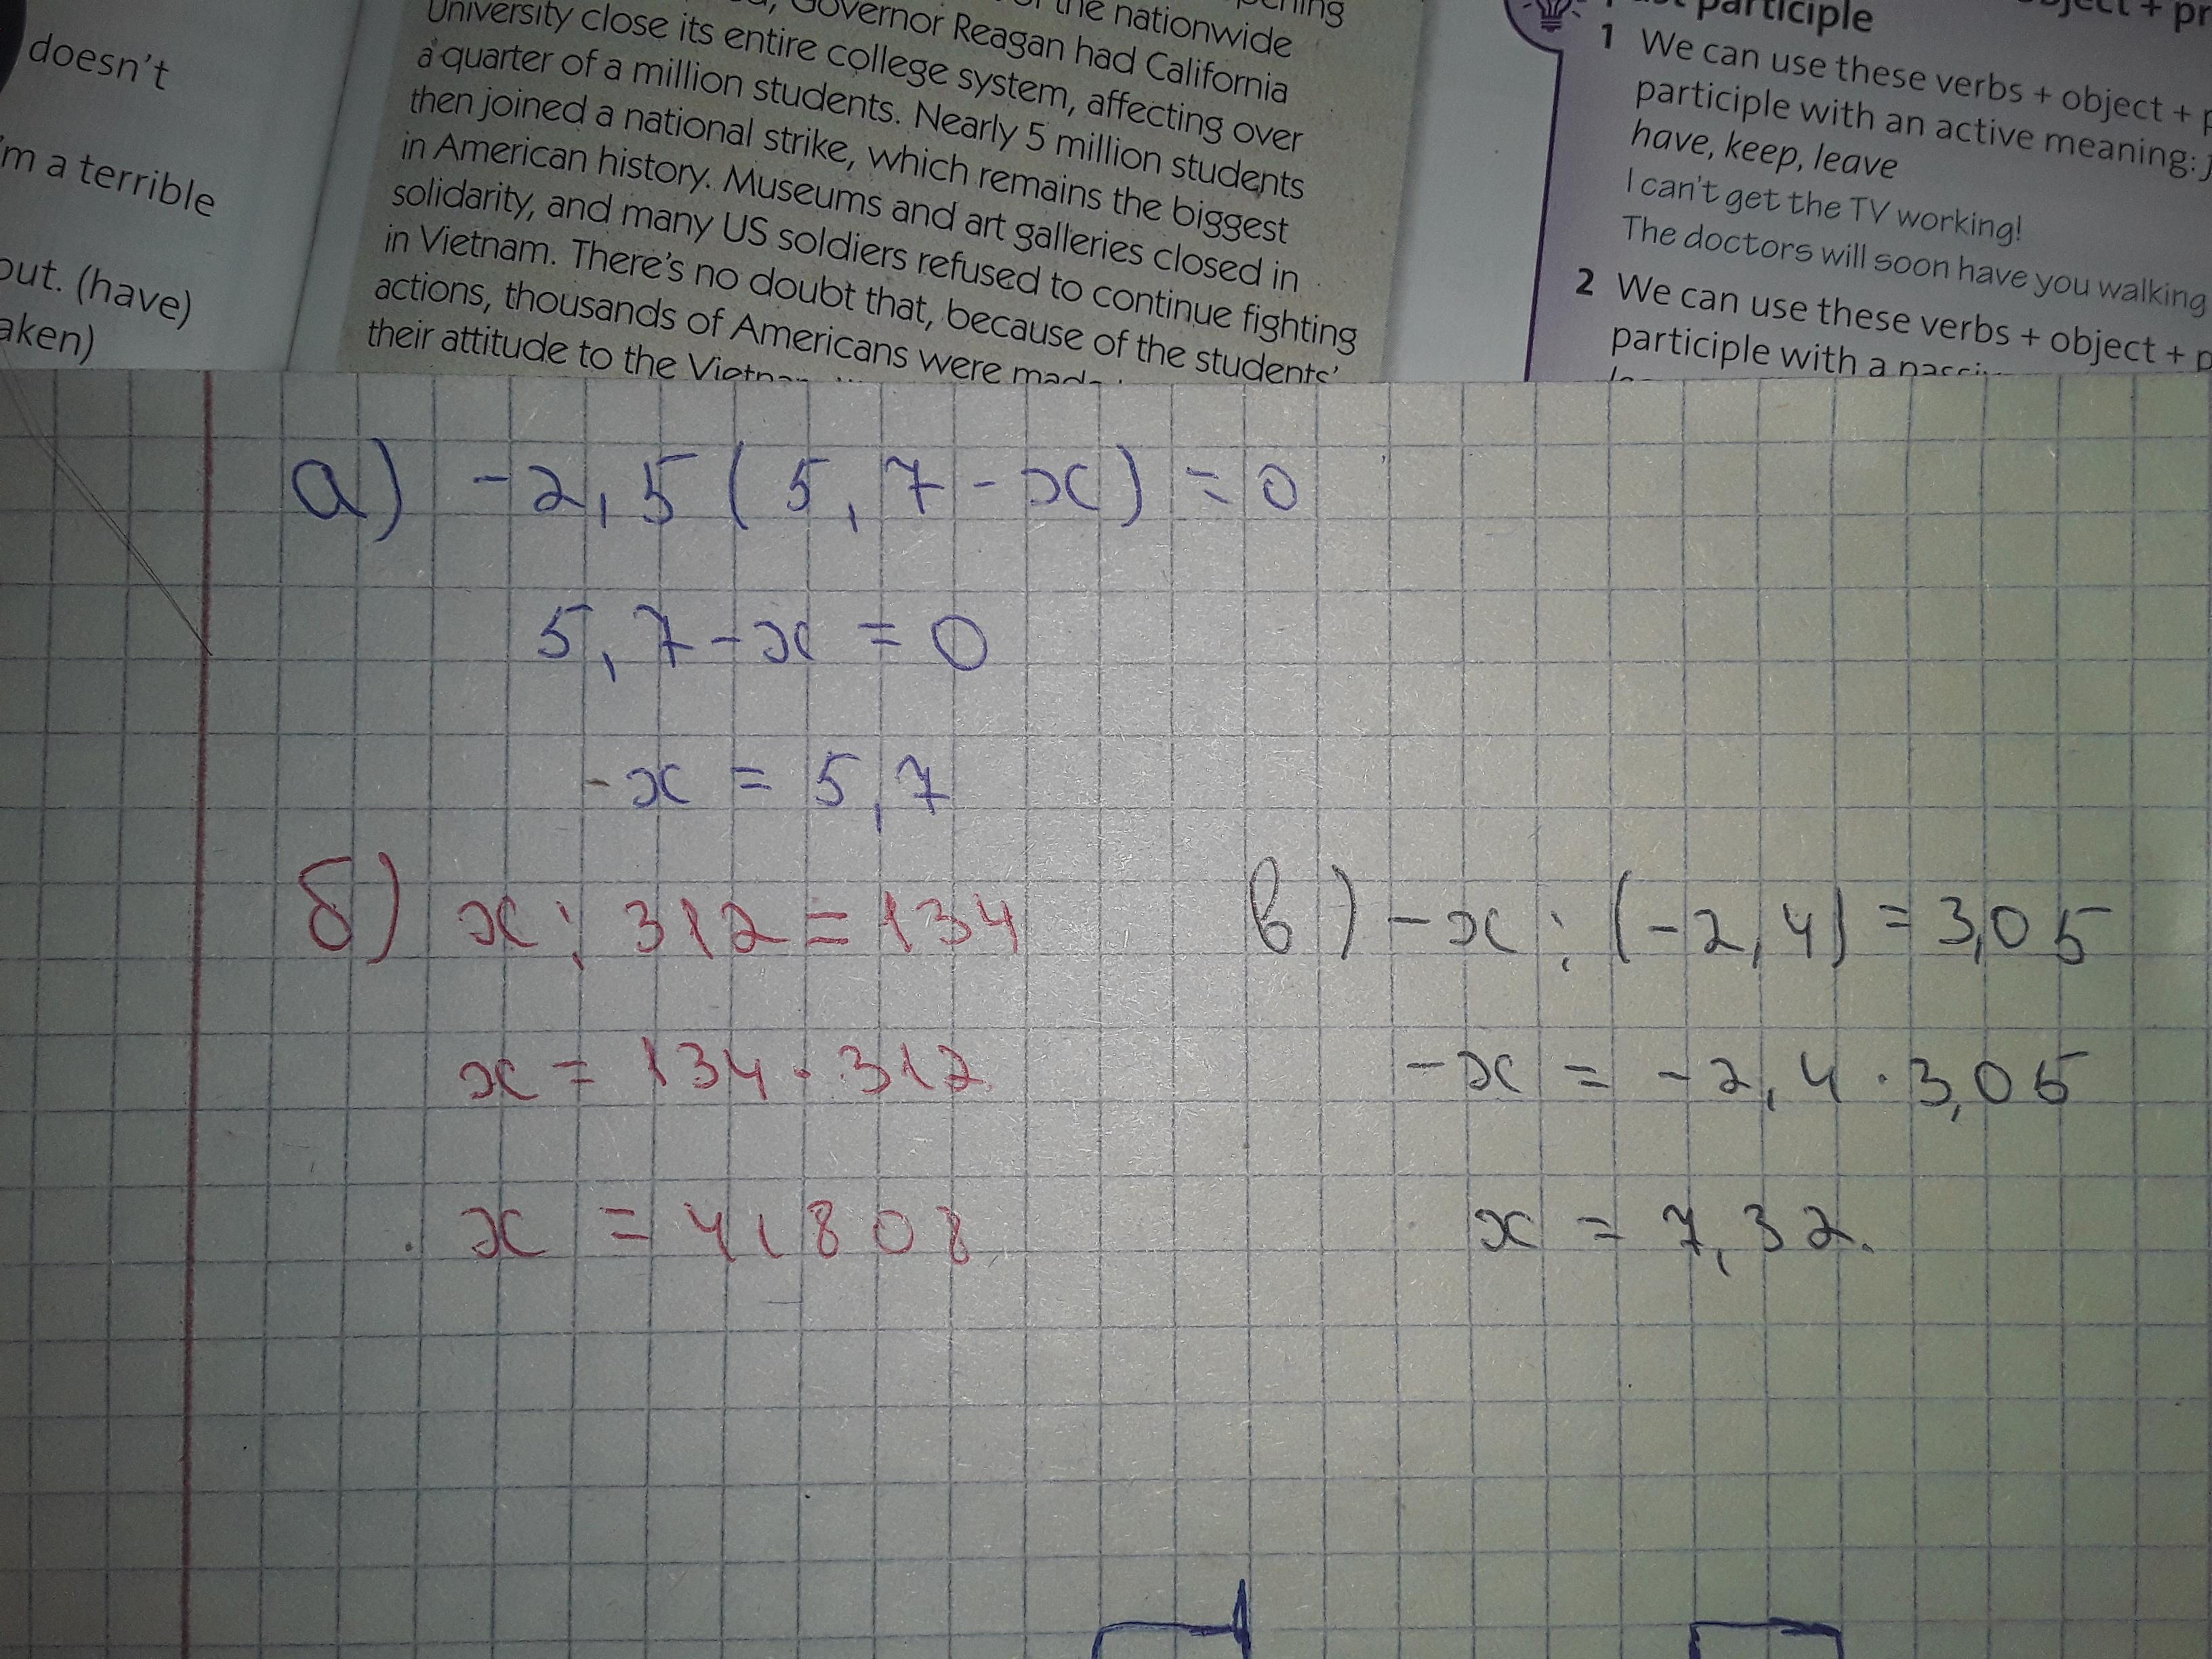 doesn't
'm a terrible
out. (have)
aken)
the nationwide
University close its entire college system, affecting over
Governor Reagan had California
a quarter of a million students. Nearly 5 million students
then joined a national strike, which remains the biggest
in American history. Museums and art galleries closed in
solidarity, and many US soldiers refused to continue fighting
in Vietnam. There's no doubt that, because of the students'
actions, thousands of Americans were made
their attitude to the Vietnam
participle
1 We can use these verbs + object +
participle with an active meaning:
have, keep, leave
I can't get the TV working!
The doctors will soon have you walking
2 We can use these verbs + object + p
participle with a passi
а) -2,5(5,7-x)=0
5,7-x=0
-x=5,7
б) x:312=134
x=134·312
x=41808
в) -x:(-2,4)=3,05
-x=-2,4·3,05
x=7,32.